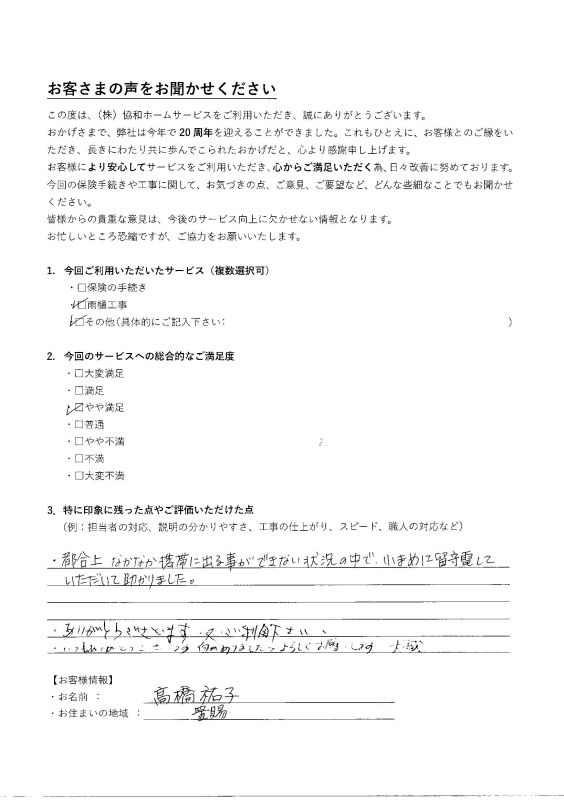 お客さまの声をお聞かせください
この度は、（株）協和ホームサービスをご利用いただき、誠にありがとうございます。
おかげさまで、弊社は今年で20周年を迎えることができました。これもひとえに、お客様とのご縁をい
ただき、長きにわたり共に歩んでこられたおかげだと、心より感謝申し上げます。
お客様により安心してサービスをご利用いただき、心からご満足いただく為、日々改善に努めております。
今回の保険手続きや工事に関して、お気づきの点、ご意見、ご要望など、どんな些細なことでもお聞かせ
ください。
皆様からの貴重な意見は、今後のサービス向上に欠かせない情報となります。
お忙しいところ恐縮ですが、ご協力をお願いいたします。
1. 今回ご利用いただいたサービス（複数選択可）
・□保険の手続き
・☑雨樋工事
・☑その他（具体的にご記入下さい： ）
2. 今回のサービスへの総合的なご満足度
・□大変満足
・□満足
・☑やや満足
・□普通
・□やや不満
・□不満
・□大変不満
3. 特に印象に残った点やご評価いただけた点
（例：担当者の対応、説明の分かりやすさ、工事の仕上がり、スピード、職人の対応など）
・都合上 なかなか携帯に出る事ができない状況の中で、小まめに留守電して
いただいて助かりました。
・ありがとうございます
【お客様情報】
・お名前 ： 高橋祐子
・お住まいの地域 ： 置賜